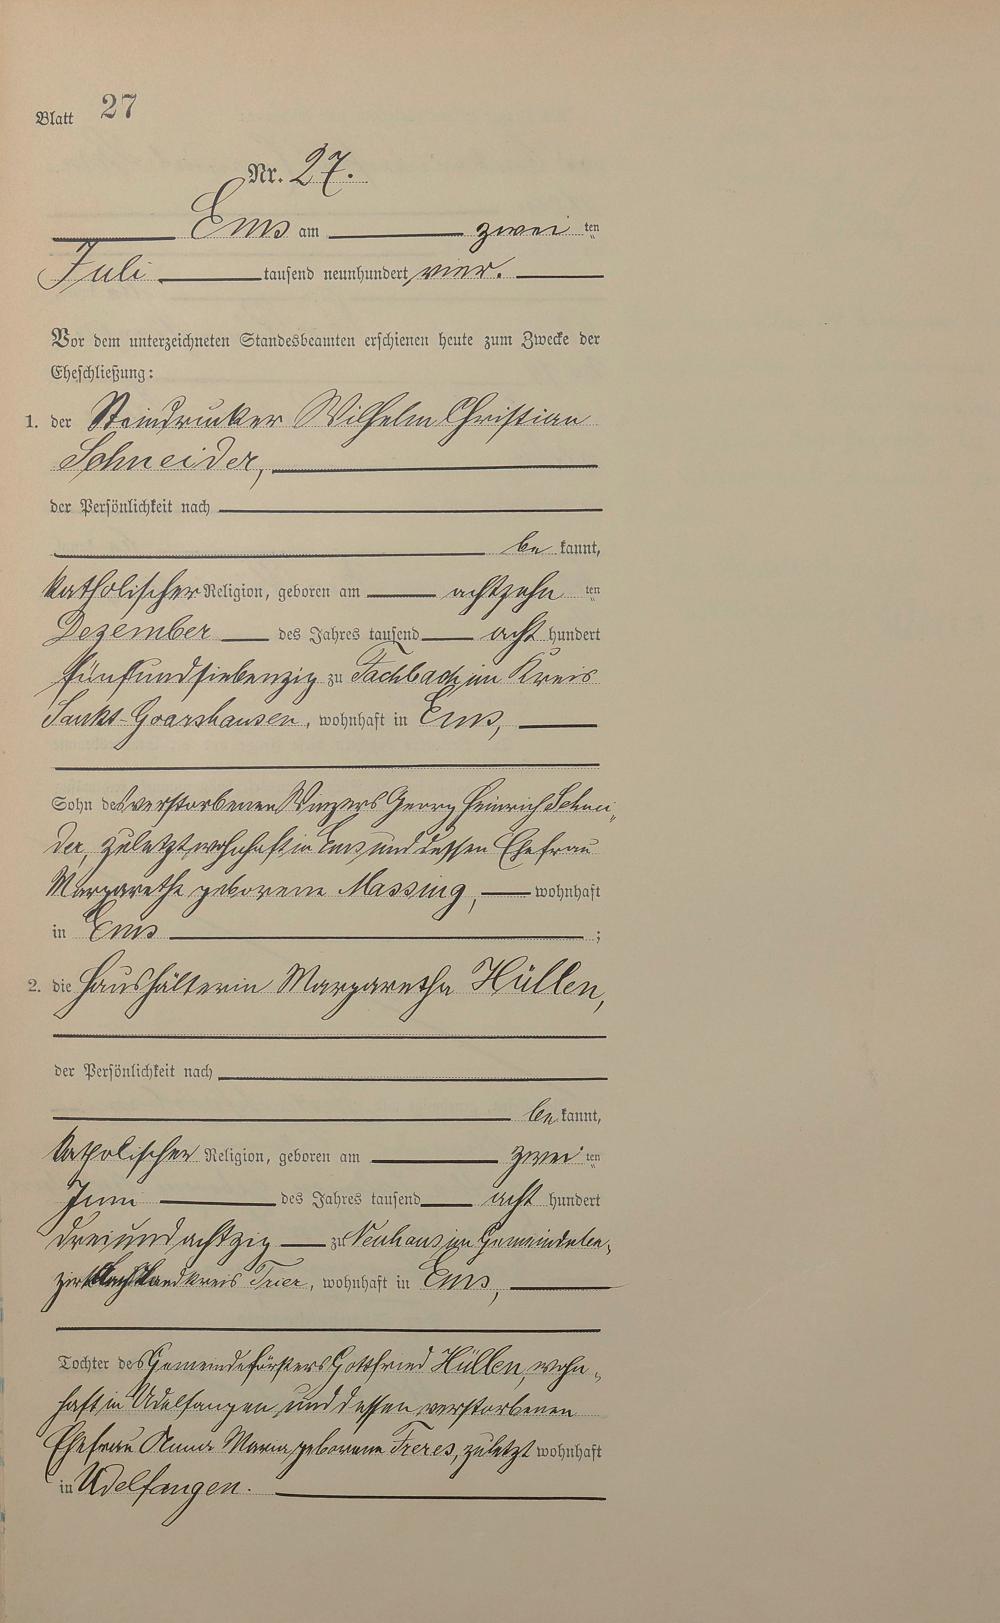 Blatt 27
Nr. 27.
Ems am zwei ten
Juli tausend neunhundert vier.
Vor dem unterzeichneten Standesbeamten erschienen heute zum Zwecke der
Eheschließung:
1. der Steindrucker Wilhelm Christian
Schneider,
der Persönlichkeit nach
be kannt,
katholischer Religion, geboren am achtzehn ten
Dezember des Jahres tausend acht hundert
fünfundsiebenzig zu Fachbach im Kreis
Sankt-Goarshausen, wohnhaft in Ems,
Sohn des verstorbenen Winzers Georg Heinrich Schnei-
der, zuletzt wohnhaft in Ems und dessen Ehefrau
Margarethe geborene Massing, wohnhaft
in Ems ;
2. die Haushälterin Margaretha Hüllen,
der Persönlichkeit nach
be kannt,
katholischer Religion, geboren am zwei ten
Juni des Jahres tausend acht hundert
dreiundachtzig zu Neuhaus im Gemeindebe-
zirk Landkreis Trier, wohnhaft in Ems,
Tochter des Gemeindeförsters Gottfried Hüllen, wohn-
haft in Udelfangen und dessen verstorbenen
Ehefrau Anna Maria geborene Freres, zuletzt wohnhaft
in Udelfangen.